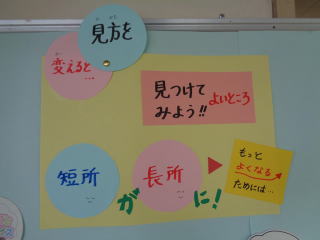 見方を
変えると…
見つけて
みよう!!
よいところ
短所
が
長所
に!
もっと
よくなる
ためには…